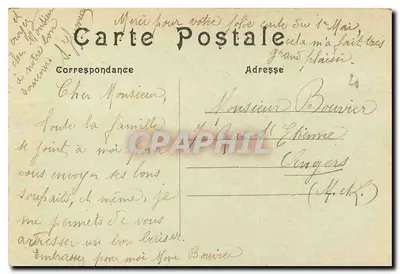 Merci pour votre jolie carte du 1er Mai,
cela m'a fait très
grand plaisir.
Carte Postale
Correspondance
Adresse
20
Cher Monsieur,
Toute la famille
se joint, à moi pour
vous envoyer ses bons
souhaits, et même, je
me permets de vous
adresser un bon baiser.
Embrassez pour moi Mme Bouvier
et
croyez
à notre bon
souvenir
Monsieur Bouvier
Angers
(M.&L.)
CPHPHIL